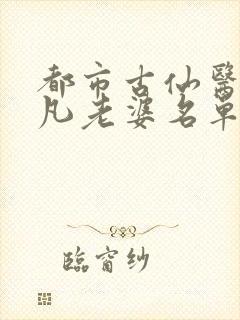 都市古仙醫
凡老婆名單
臨窗紗